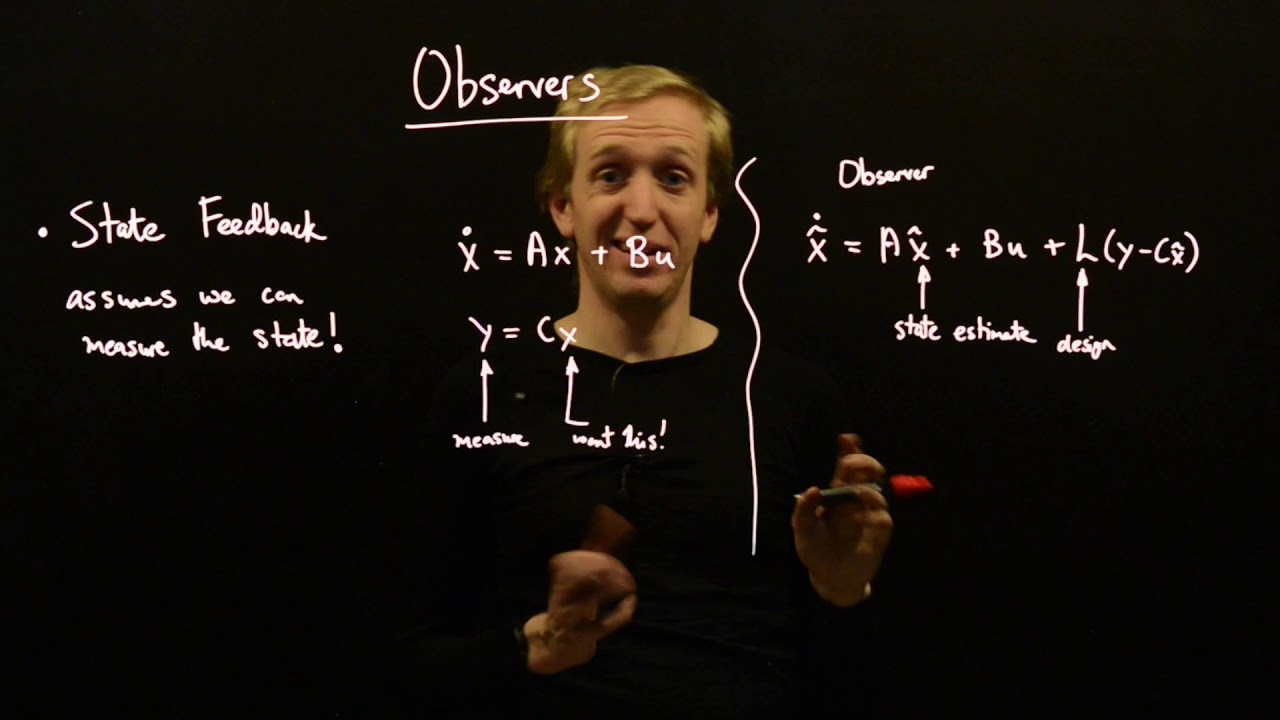 Observers
• State Feedback
assumes we can
measure the state!
ẋ = Ax + Bu
y = Cx
measure
want this!
Observer
x̂̇ = Ax̂ + Bu + L(y-Cx̂)
state estimate
design